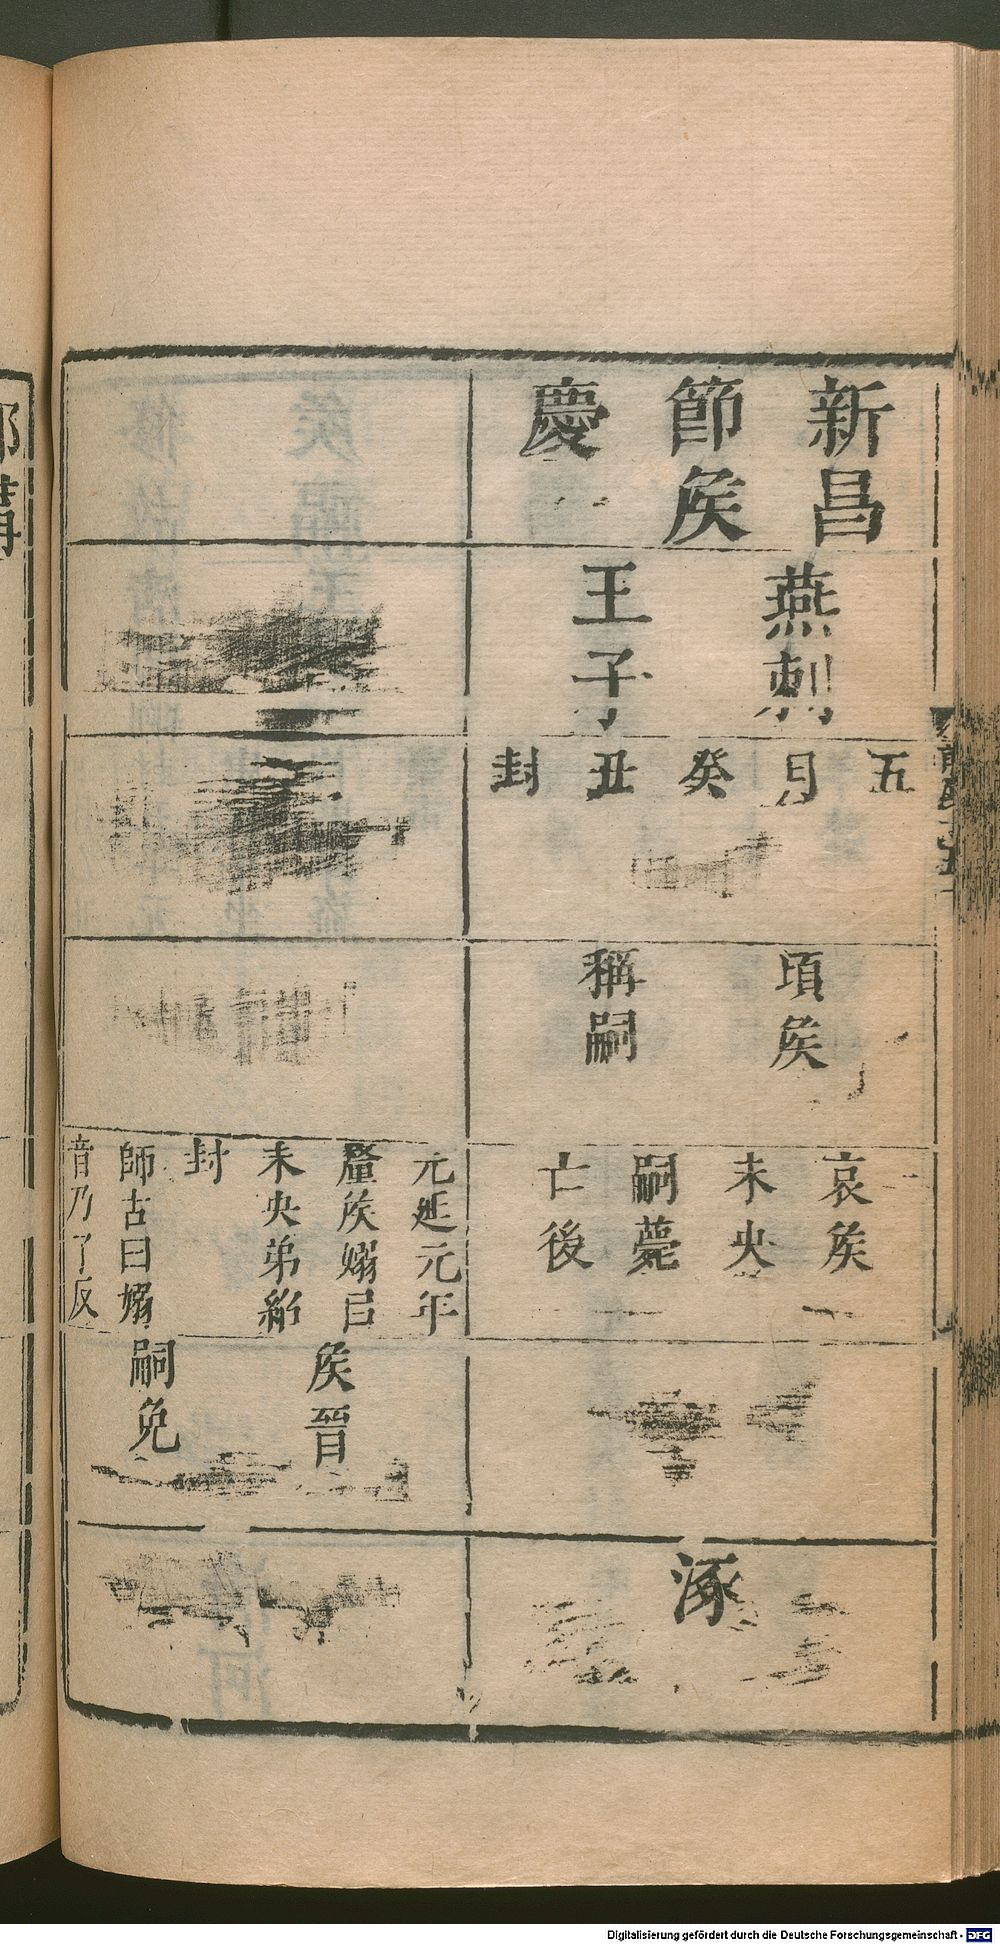 新昌
節矦
慶
燕刺
王子
五
月
癸
丑
封
頃矦
稱嗣
哀矦
未央
嗣薨
亡後
涿
元延元年
釐矦嫋㠯
未央弟紹
封
師古曰嫋
音乃了反
矦晉
嗣免
Digitalisierung gefördert durch die Deutsche Forschungsgemeinschaft - DFG